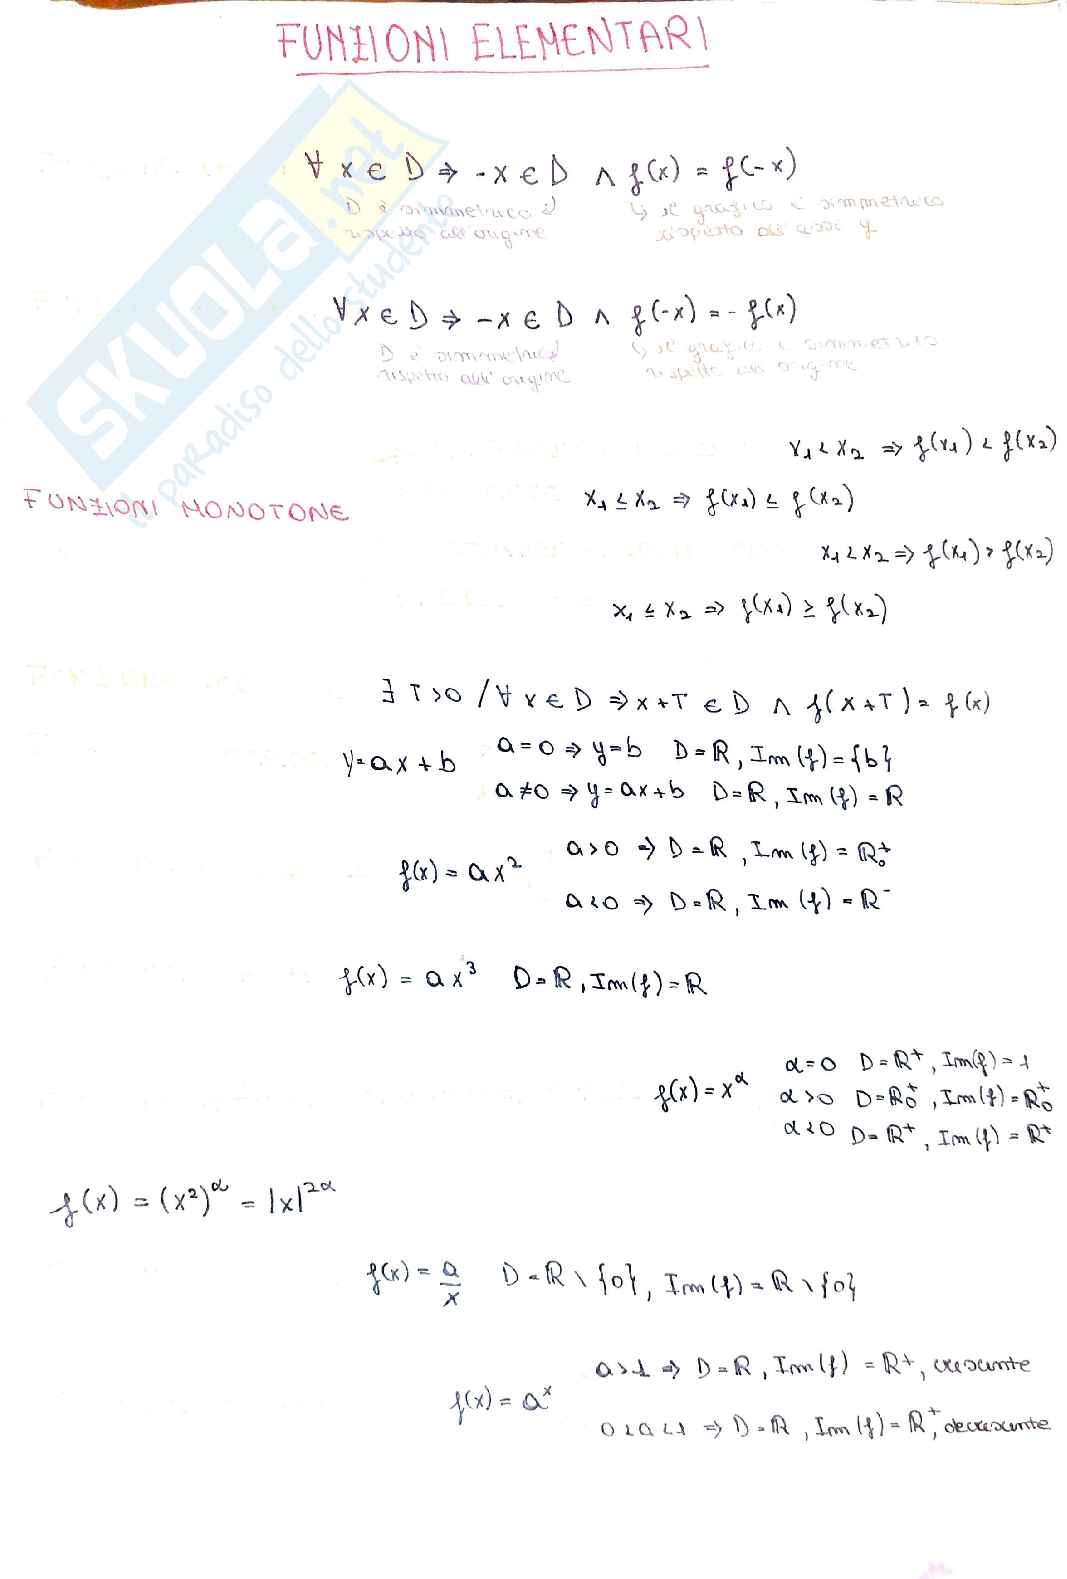 FUNZIONI ELEMENTARI
∀ x ∈ D ⇒ -x ∈ D ∧ f(x) = f(-x)
D è simmetrico
rispetto all'origine
↳ il grafico è simmetrico
rispetto all'asse y
∀ x ∈ D ⇒ -x ∈ D ∧ f(-x) = - f(x)
D è simmetrico
rispetto all'origine
↳ il grafico è simmetrico
rispetto all'origine
x₁ < x₂ ⇒ f(x₁) < f(x₂)
FUNZIONI MONOTONE
x₁ ≤ x₂ ⇒ f(x₁) ≤ f(x₂)
x₁ < x₂ ⇒ f(x₁) > f(x₂)
x₁ ≤ x₂ ⇒ f(x₁) ≥ f(x₂)
∃ T>0 / ∀ x ∈ D ⇒ x+T ∈ D ∧ f(x+T) = f(x)
y=ax+b
a=0 ⇒ y=b D=ℝ, Im(f)={b}
a≠0 ⇒ y=ax+b D=ℝ, Im(f)=ℝ
f(x) = ax²
a>0 ⇒ D=ℝ, Im(f)=ℝ₀⁺
a<0 ⇒ D=ℝ, Im(f)=ℝ⁻
f(x) = ax³ D=ℝ, Im(f)=ℝ
f(x)=x^α
α=0 D=ℝ⁺, Im(f)=1
α>0 D=ℝ₀⁺, Im(f)=ℝ₀⁺
α<0 D=ℝ⁺, Im(f)=ℝ⁺
f(x) = (x²)^α = |x|^2α
f(x) = a/x D=ℝ \ {0}, Im(f)=ℝ \ {0}
f(x) = aˣ
a>1 ⇒ D=ℝ, Im(f)=ℝ⁺, crescente
0<a<1 ⇒ D=ℝ, Im(f)=ℝ⁺, decrescente
SKUOLA.net
il paradiso dello studente